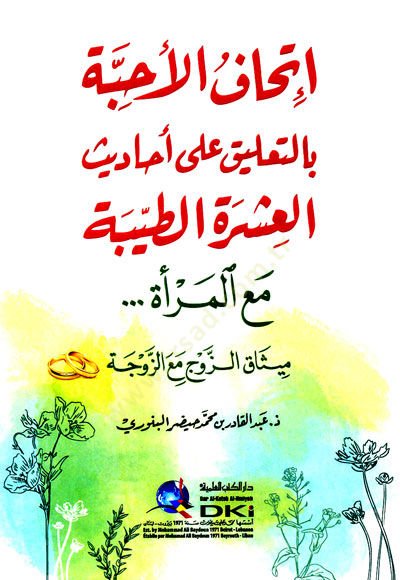 إتحاف الأحبَّة
بالتعليق على أحاديث
العِشرَة الطيّبَة
مَع المَرْأة ...
ميثَاق الزَّوج مَع الزَّوجَة
ذ. عبد القادر بن محمَّد
دار الكتب العلمية
Dar Al-Kotob Al-Ilmiyah
DKi
Est. by Mohammad Ali Baydoun 1971 Beirut - Lebanon
Établie par Mohamad Ali Baydoun 1971 Beyrouth - Liban